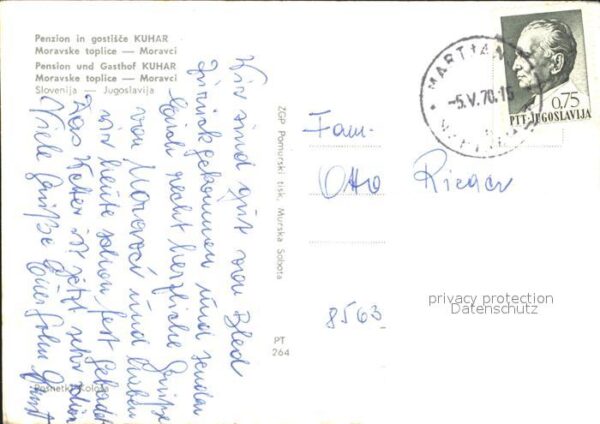 Penzion in gostišče KUHAR
Moravske toplice — Moravci
Pension und Gasthof KUHAR
Moravske toplice — Moravci
Slovenija — Jugoslavija
Wir sind gut von Bled
zurückgekommen und senden
Euch recht herzliche Grüße
von Moravci und haben
wir heute schon fest gebadet
Das Wetter ist jetzt sehr schön
Viele Grüße Euer Sohn
Posnetki Kološa
ZGP Pomurski tisk, Murska Sobota
PT
264
MARTJAN
-5.V.70.15
0,75
PTT-JUGOSLAVIJA
Fam.
Otto Rieger
8563
privacy protection
Datenschutz